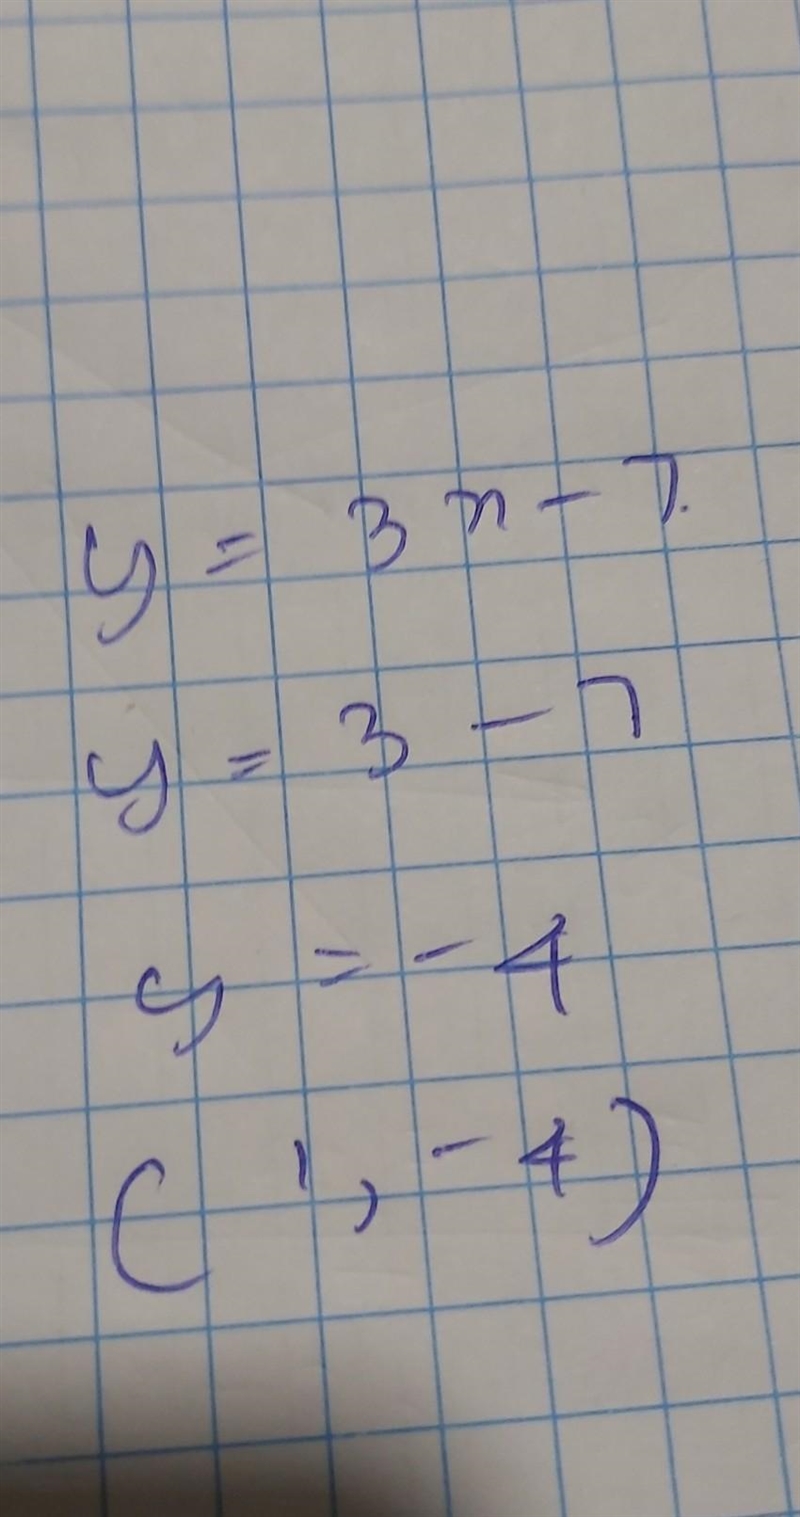 y = 3x - 7.
y = 3 - 7
y = - 4
( 1, - 4)